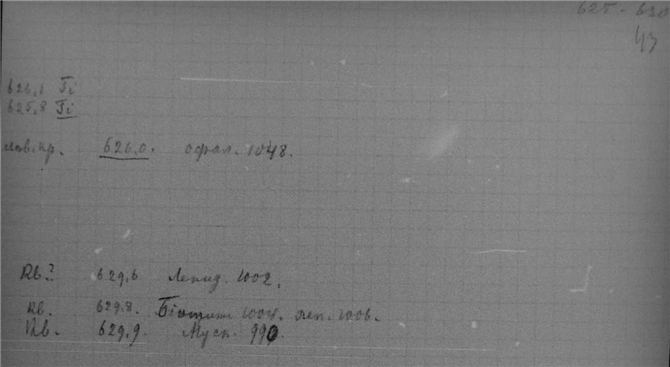 625 - 630
43
626,1 Ti
625,8 Ti
626.0. 1048.
Rb.? 629,6 Лепид. 1002.
Rb. 629.8. Біотит 1004. леп. 1006.
Rb. 629,9. Муск. 990.